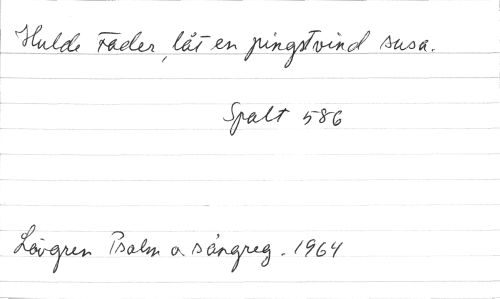 Hulde Fader, låt en pingstvind susa.
Spalt 586
Lövgren Psalm o sångreg. 1964